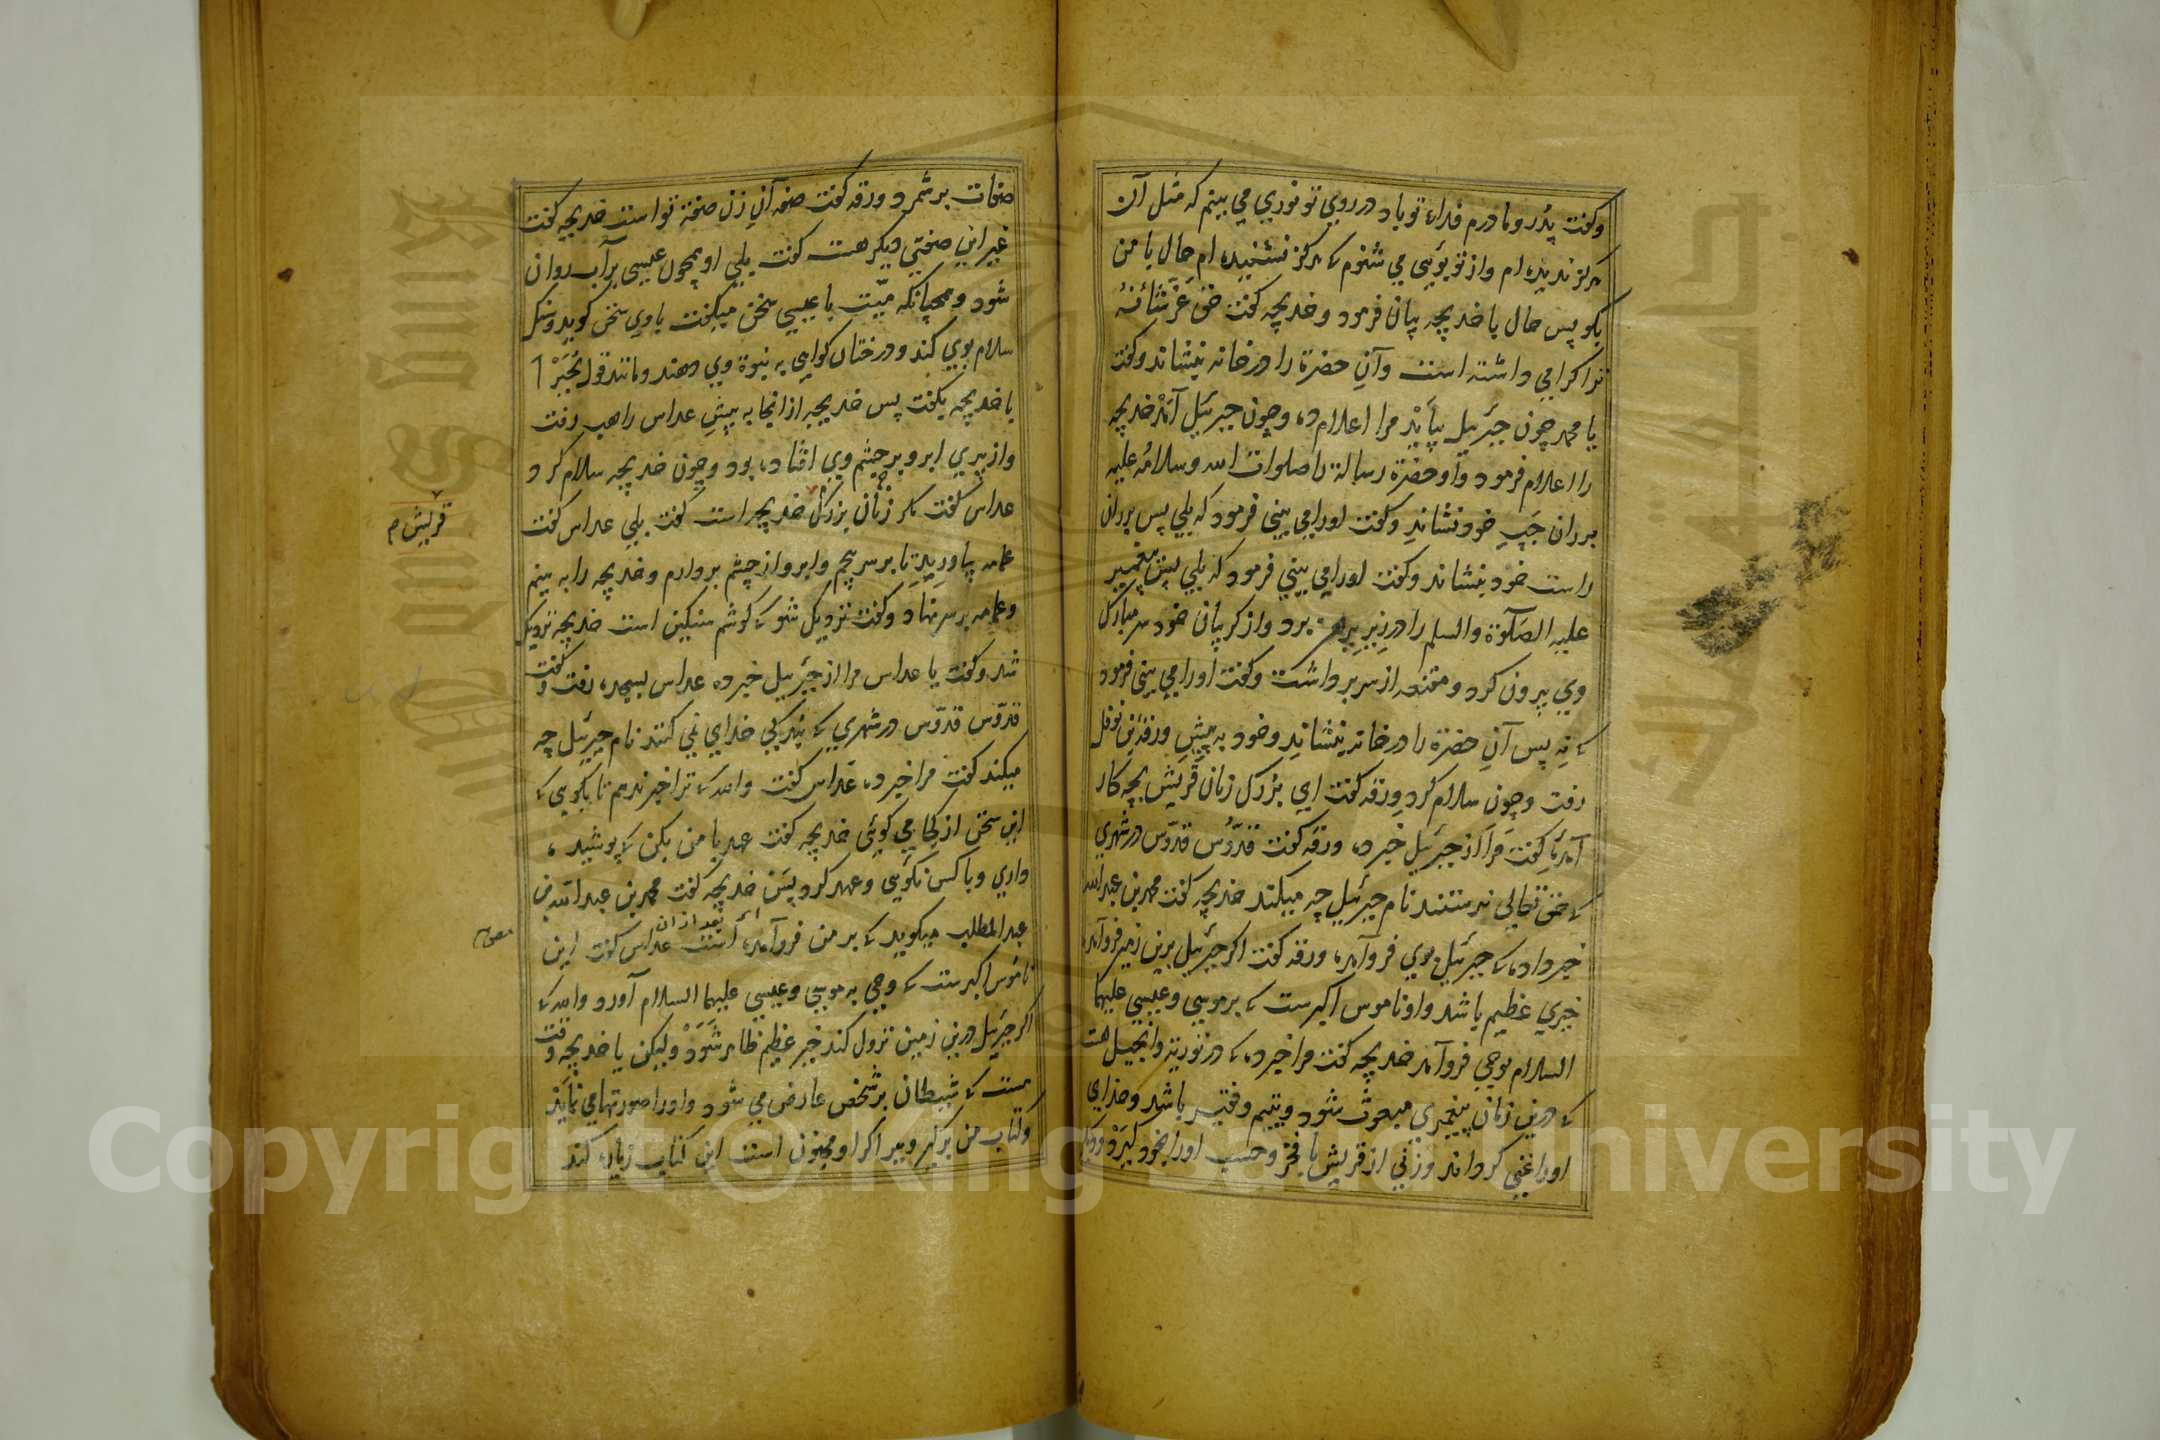 وكفت پدر ومادرم فداء توباد در روي تو نوري مي بينم كه مثل آن
هركز نديده ام واز تو بوئي مي شنوم كه هركز نشنيده ام حال با من
بكو پس حال با خديجه بيان فرمود وخديجه كفت حق عز شأنه
ترا كرامي داشته است وآن حضرة را در خانه بنشاند وكفت
يا محمد چون جبرئيل بيايد مرا اعلام ده وچون جبرئيل آمد خديجه
را اعلام فرمود واو حضرة رسالة را صلوات الله وسلامه عليه
بر ران چپ خود نشاند وكفت اورا مي بيني فرمود كه بلي پس بر ران
راست خود بنشاند وكفت اورا مي بيني فرمود كه بلي پس پيغمبر
عليه الصلوة والسلم را در زير پيرهن برد واز كريبان خود سر مبارك
وي بيرون كرد ومقنعه از سر برداشت وكفت اورا مي بيني فرمود
كه نه پس آن حضرة را در خانه بنشاند وخود به پيش ورقه بن نوفل
رفت وچون سلام كرد ورقه كفت اي بزرك زنان قريش بچه كار
آمدۀ كفت مرا از جبرئيل خبر ده ورقه كفت قدّوس قدّوس در شهري
كه حق تعالي نپرستند نام جبرئيل چه ميكند خديجه كفت محمد بن عبدالله
خبر داده كه جبرئيل بوي فروآمده ورقه كفت اكر جبرئيل برين زمين فروآمده
خبري عظيم باشد واو ناموس اكبرست كه بر موسي وعيسي عليهما
السلام بوحي فروآمد خديجه كفت مرا خبر ده كه در تورية وانجيل هست
كه درين زمان پيغمبري مبعوث شود ويتيم وفقير باشد وخداي
اورا غني كرداند وزني از قريش با فخر وحسب اورا بخود كيرد
صفات برشمرد ورقه كفت صفه آن زن صفة تواست خديجه كفت
غير اين صفتي ديكر هست كفت بلي او همچون عيسي بر آب روان
شود وهمچنانكه ميّت با عيسي سخن ميكفت با وي سخن كويد وسنك
سلام بوي كند ودرختان كواهي به نبوة وي دهند ومانند قول بحيرا
با خديجه بكفت پس خديجه از انجا به پيش عداس راهب رفت
واز پيري ابرو بر چشم وي افتاده بود وچون خديجه سلام كرد
عداس كفت مكر زنان بزرك خديجه است كفت بلي عداس كفت
قريش م
عمامه بياوريد تا بر سر پيچم وابرو از چشم بردارم وخديجه را به بينم
وعمامه بر سر نهاد وكفت نزديك شو كه كوشم سنكين است خديجه نزديك
شد وكفت يا عداس مرا از جبرئيل خبر ده عداس بسجده رفت وكفت
قدّوس قدّوس در شهري كه بندكي خداي نمي كنند نام جبرئيل چه
ميكند كفت مرا خبر ده عداس كفت والله كه ترا خبر ندهم تا بكويي كه
اين سخن از كجا مي كوئي خديجه كفت عهد با من بكن كه پوشيده
داري وبا كس نكوئي وعهد كرد پس خديجه كفت محمد بن عبدالله بن
عبدالمطلب ميكويد كه بر من فروآمده است بعد ازان عداس كفت اين
ناموس اكبرست كه وحي به موسي وعيسي عليهما السلام آورد والله كه
اكر جبرئيل درين زمين نزول كند خبر عظيم ظاهر شود وليكن يا خديجه وقت
هست كه شيطان بر شخص عارض مي شود واورا صورتها مي نمايد
وكتاب من بركير وببر اكر او مجنون است اين كتاب زياده كند